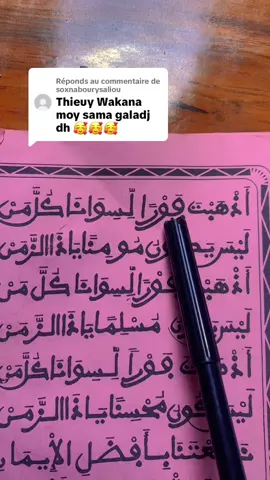 Réponds au commentaire de
soxnabourysaliou
Thieuy Wakana
moy sama galadj
dh 🥰🥰🥰
أَذْهَبْتَ فَوْرًا لِسِوَانَا كُلَّ مَنْ
لَيْسَ يَكُونُ مُومِنًا يَاذَا الزَّمَنْ
أَذْهَبْتَ فَوْرًا لِسِوَانَا كُلَّ مَنْ
لَيْسَ مُسْلِمًا يَاذَا الزَّمَنْ
فَوْرًا لِسِوَانَا كُلَّ مَنْ
لَيْسَ يَكُونُ مُحْسِنًا يَاذَا الزَّمَنْ
بِأَفْضَلِ